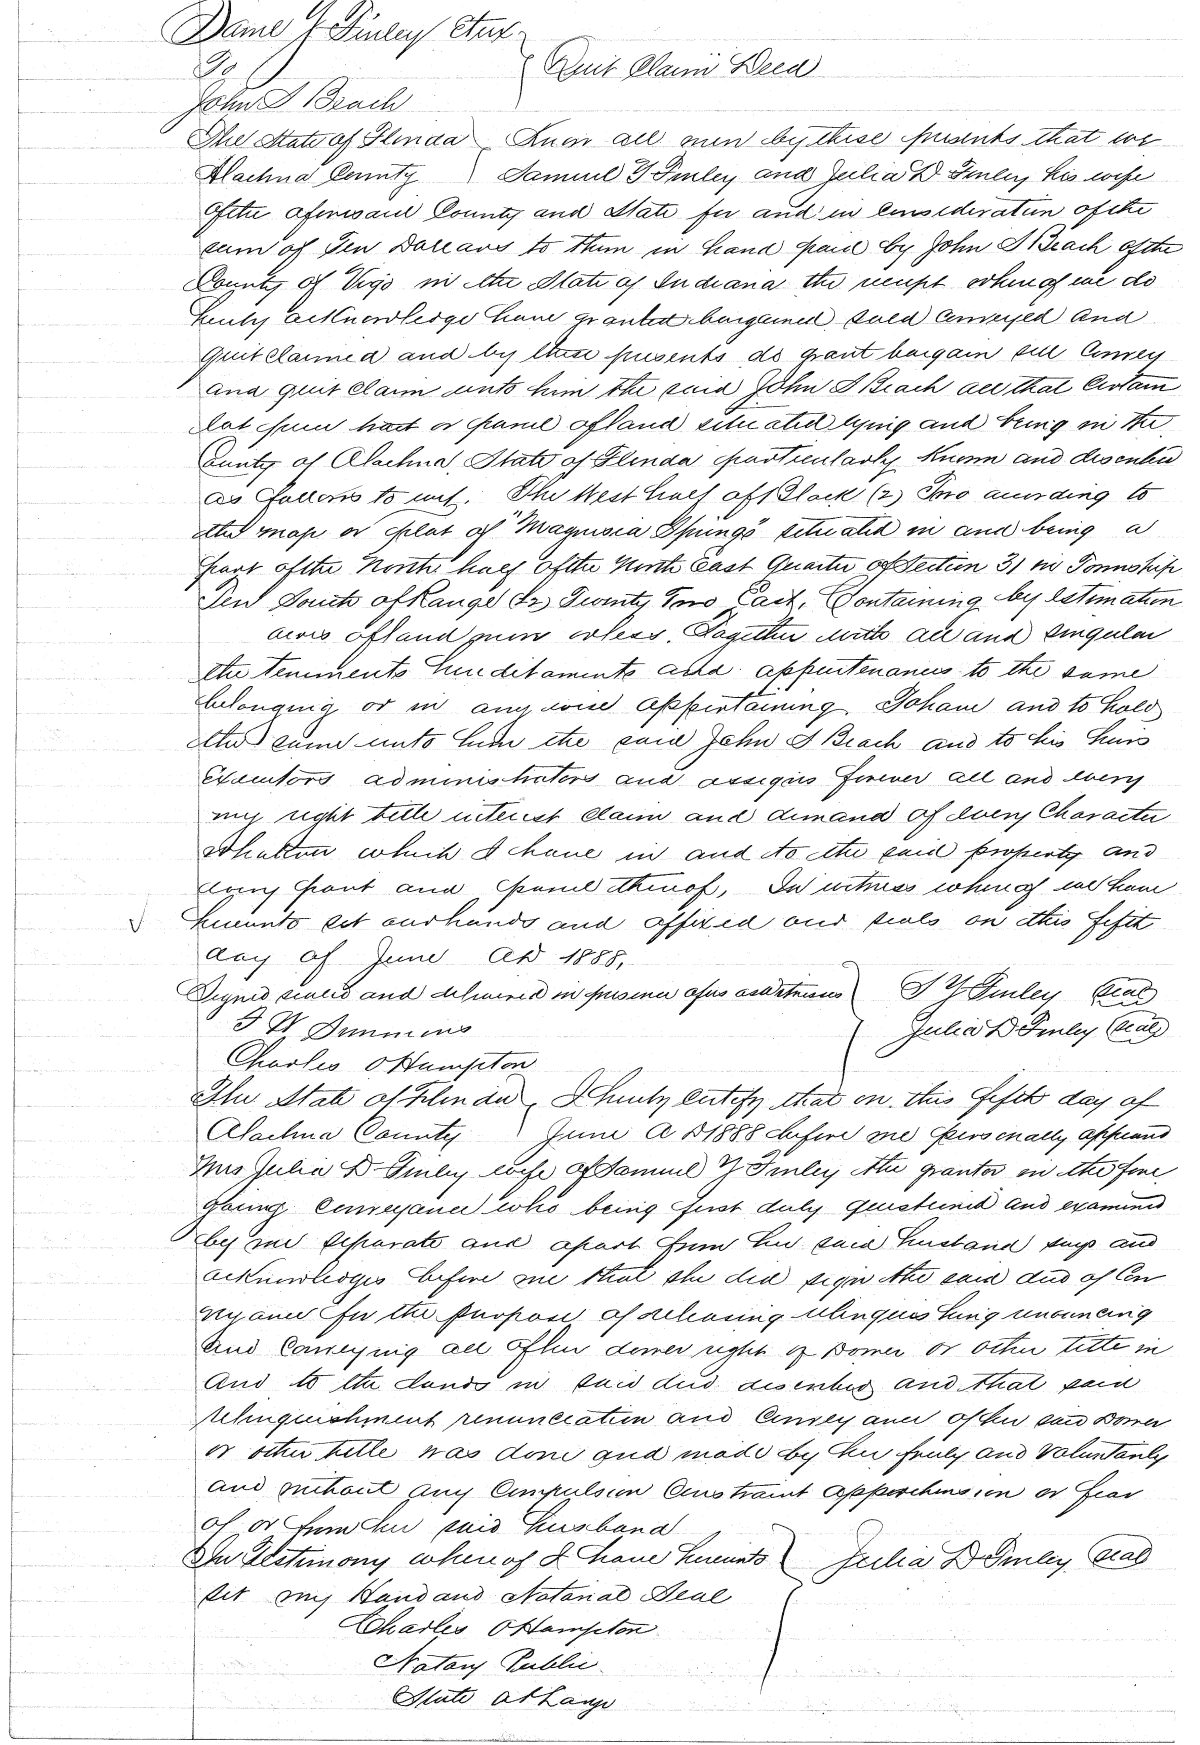 Saml Y Finley Etux
To
Quit Claim Deed
John S Beach
The State of Florida Know all men by these presents that we
Alachua County Samuel Y Finley and Julia D Finley his wife
of the aforesaid County and State for and in Consideration of the
sum of Ten Dollars to them in hand paid by John S Beach of the
County of Vigo in the State of Indiana the receipt whereof we do
hereby acknowledge have granted bargained sold Conveyed and
quit claimed and by these presents do grant bargain sell Convey
and quit claim unto him the said John S Beach all that Certain
lot piece tract or parcel of land situated lying and being in the
County of Alachua State of Florida particularly Known and described
as follows to wit. The West half of Block (2) Two according to
the map or plat of "Magnesia Springs" situated in and being a
part of the North half of the North East Quarter of Section 31 in Township
Ten South of Range (22) Twenty Two East, Containing by estimation
acres of land more or less. Together with all and singular
the tenements hereditaments and appurtenances to the same
belonging or in any wise appertaining. To have and to hold
the same unto him the said John S Beach and to his heirs
executors administrators and assigns forever all and every
my right title interest claim and demand of every Character
whatever which I have in and to the said property and
every part and parcel thereof, In witness whereof we have
hereunto set our hands and affixed our seals on this fifth
day of June AD 1888,
Signed sealed and delivered in presence of us as witnesses S Y Finley (Seal)
J W Simmons Julia D Finley (Seal)
Charles O Hampton
The State of Florida I hereby certify that on this fifth day of
Alachua County June A D 1888 before me personally appeared
Mrs Julia D Finley wife of Samuel Y Finley the grantor in the fore
going Conveyance who being first duly questioned and examined
by me separate and apart from her said husband says and
acknowledges before me that she did sign the said deed of Con
veyance for the purpose of releasing relinquishing renouncing
and Conveying all of her dower right of Dower or other title in
and to the lands in said deed described and that said
relinquishment renunciation and Conveyance of her said Dower
or other title was done and made by her freely and Voluntarily
and without any Compulsion Constraint apprehension or fear
of or from her said husband
In Testimony whereof I have hereunto Julia D Finley Seal
set my Hand and Notarial Seal
Charles O Hampton
Notary Public
State at Large